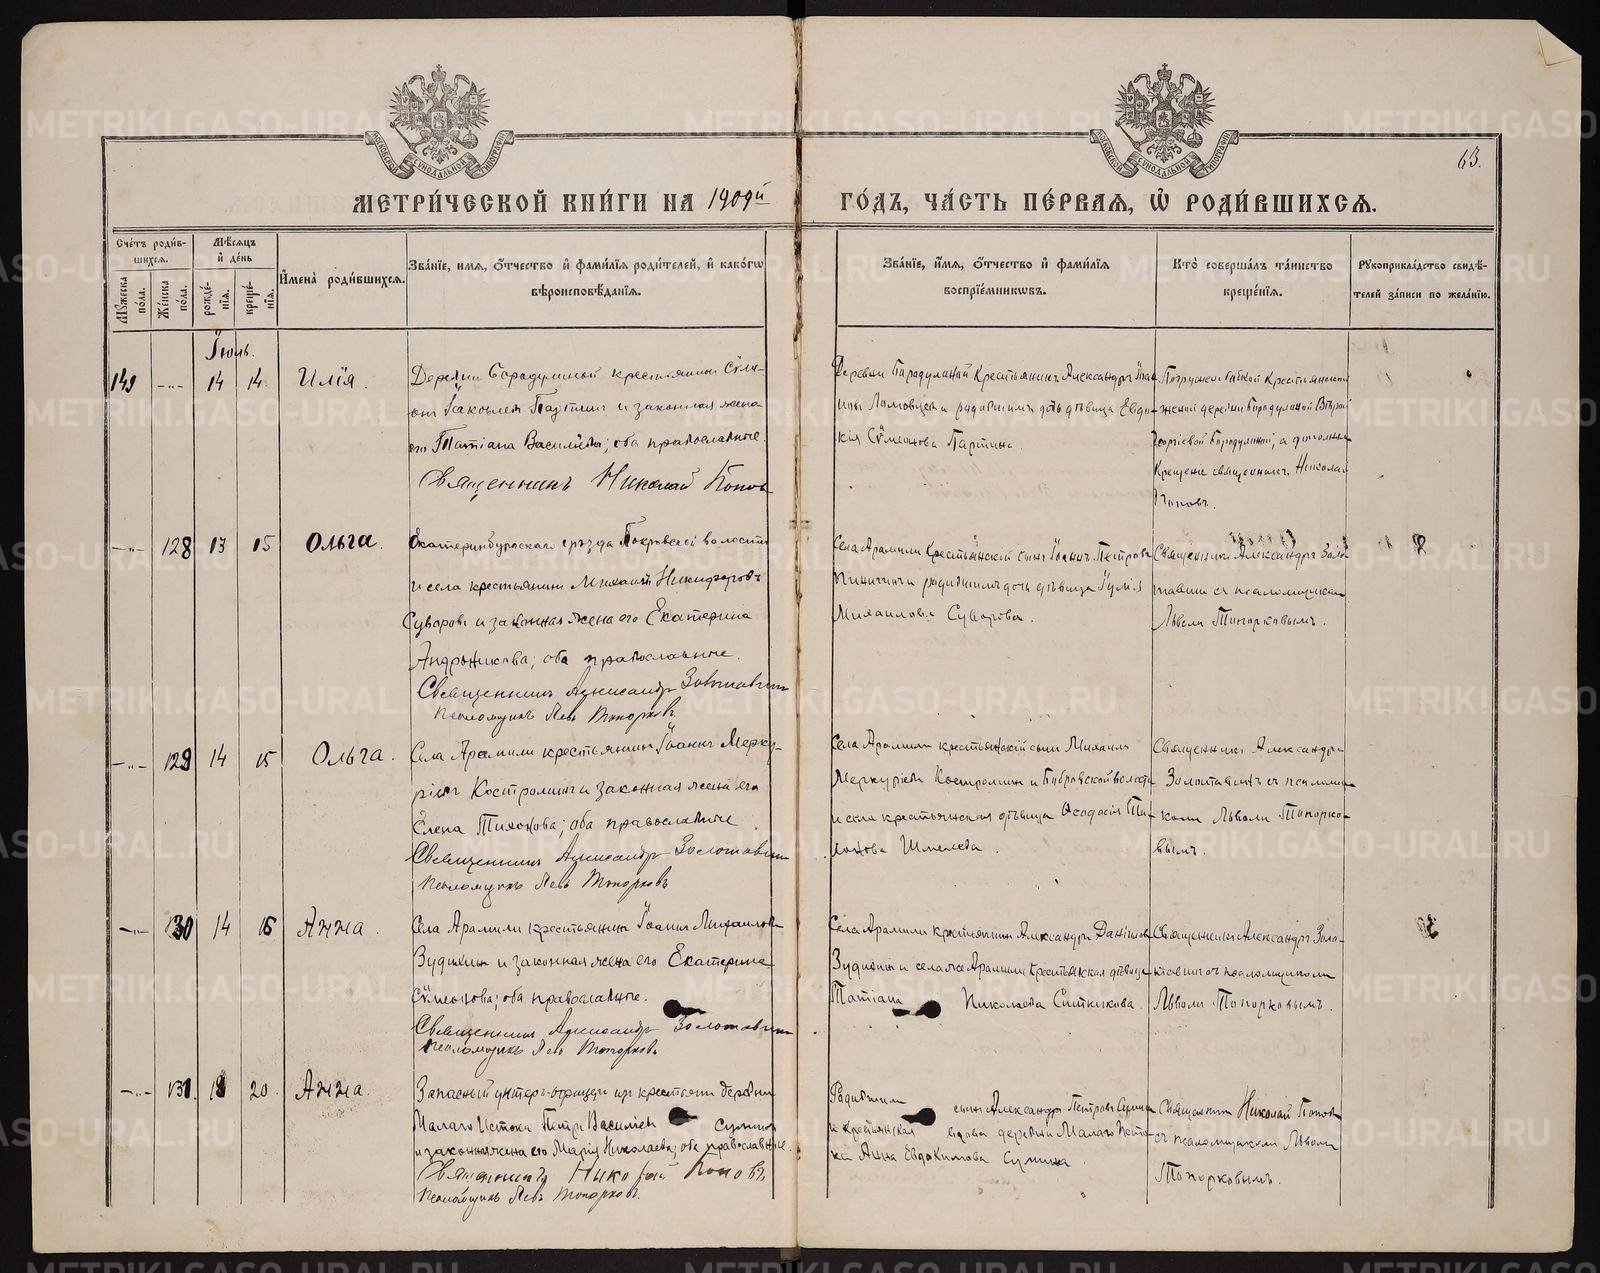 63.
МЕТРИ́ЧЕСКОЙ КНИ́ГИ НА 1909й ГО́ДЪ, ЧА́СТЬ ПЕ́РВАЯ, Ѽ РОДИ́ВШИХСЯ.
Сче́тъ роди́в-
шихся.
Мꙋжеска по́ла.
Же́нска по́ла.
Мѣ́сяцъ
и҆ де́нь
рожде́-
нїя.
креще́-
нїя.
И҆мена̀ роди́вшихся.
Зва́нїе, имя, о҆́тчество и҆ фами́лїя роди́телей, и҆ како́гѡ
вѣроисповѣ́данїя.
Зва́нїе, и҆́мя, о҆́тчество и҆ фами́лїя
воспрїе́мникѡвъ.
Кто̀ соверша́лъ та́инство
креще́нїя.
Рꙋкоприкла́дство свидѣ́-
телей за́писи по жела́нїю.
Іюнь.
149 —„— 14 14 Илія.
Деревни Бородулиной крестьянинъ Сѷме-
онъ Іаковлевъ и законная жена
его Татіана Васильева; оба православные.
Священникъ Николай Поповъ
Деревни Бородулиной крестьянинъ Александръ Іоан-
новъ и родителя дочь дѣвица Евдо-
кія Сѷмеонова
Погружен бабкой крестьянской
женой деревни Бородулиной
Бородулиной, а дополнилъ
крещеніе священникъ Николай
Поповъ.
—„— 128 13 15 Ольга.
Екатеринбургскаго уѣзда Покровской волости
и села крестьянинъ Михаилъ Никифоровъ
Суворовъ и законная жена его Екатерина
Андроникова; оба православные.
Священникъ Александръ Золотавинъ
Псаломщикъ Левъ Топорковъ
Села Арамили крестьянскій сынъ Іоаннъ Петровъ
и родителя дочь дѣвица
Михаилова Суворова.
Священникъ Александръ Золо-
тавинъ съ псаломщикомъ
Львомъ Топорковымъ.
—„— 129 14 15 Ольга.
Села Арамили крестьянинъ Іоаннъ Мерку-
ріевъ Костроминъ и законная жена его
Елена Тихонова; оба православные.
Священникъ Александръ Золотавинъ
Псаломщикъ Левъ Топорковъ
Села Арамили крестьянскій сынъ Михаилъ
Меркурьевъ Костроминъ и Бобровской волости
и села крестьянская дѣвица Ѳеодосія Ти-
хонова Шмелева.
Священникъ Александръ
Золотавинъ съ псаломщи-
комъ Львомъ Топорко-
вымъ.
—„— 130 14 16 Анна.
Села Арамили крестьянинъ Іоаннъ Михаиловъ
Зудихинъ и законная жена его Екатерина
Сѷмеонова; оба православные.
Священникъ Александръ Золотавинъ
Псаломщикъ Левъ Топорковъ
Села Арамили крестьянинъ Александръ Даніиловъ
Зудихинъ и села же Арамили крестьянская дѣвица
Татіана Николаева Ситникова.
Священникъ Александръ Золо-
тавинъ съ псаломщикомъ
Львомъ Топорковымъ.
—„— 131. 18 20. Анна.
Запасный унтеръ-офицеръ изъ крестьянъ деревни
Малаго Истока Петръ Васильевъ Суминъ
и законная жена его Марія Николаева; оба православные.
Священникъ Николай Поповъ,
Псаломщикъ Левъ Топорковъ.
сынъ Александръ Петровъ Суминъ
и крестьянская вдова деревни Малаго Исто-
ка Анна Евдокимова Сумина
Священникъ Николай Поповъ
съ псаломщикомъ Львомъ
Топорковымъ.
METRIKI.GASO-URAL.RU